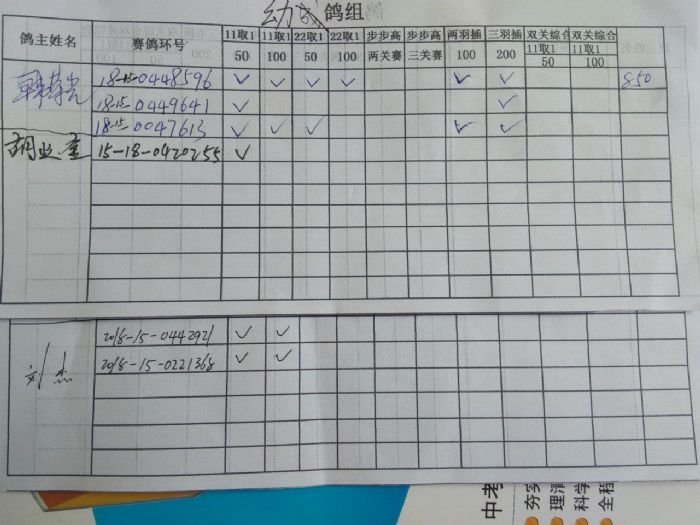 幼 鸽组
鸽主姓名 赛鸽环号 11取1 50 11取1 100 22取1 50 22取1 100 步步高 两关赛 步步高 三关赛 两羽插 100 三羽插 200 双关综合 11取1 50 双关综合 11取1 100
18-15-0448596 ✓ ✓ ✓ ✓ ✓ ✓ 850
18-15-0449641 ✓ ✓
18-15-0047613 ✓ ✓ ✓ ✓ ✓
15-18-0420255 ✓
2018-15-0442921 ✓ ✓
2018-15-0221368 ✓ ✓
刘杰
中考
夯实
理清
科学
全程